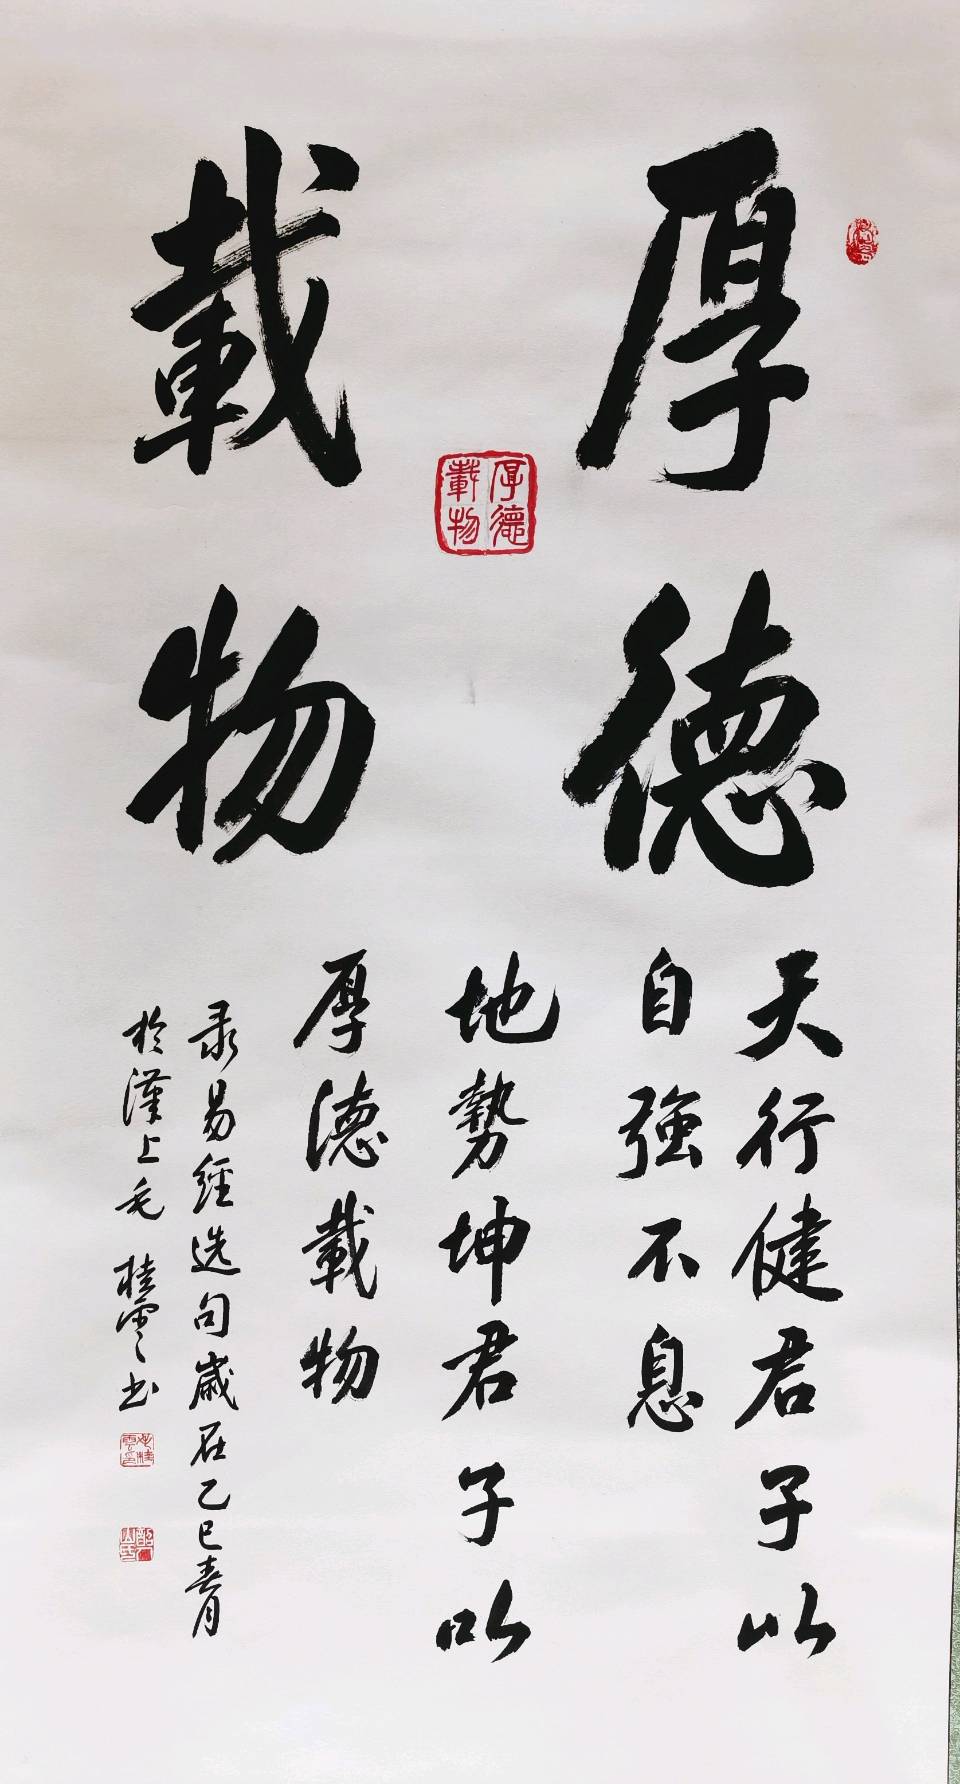 厚德
載物
厚德
載物
天行健君子以
自強不息
地勢坤君子以
厚德載物
录易經选句歲在乙巳春月
於漢上毛桂雲书